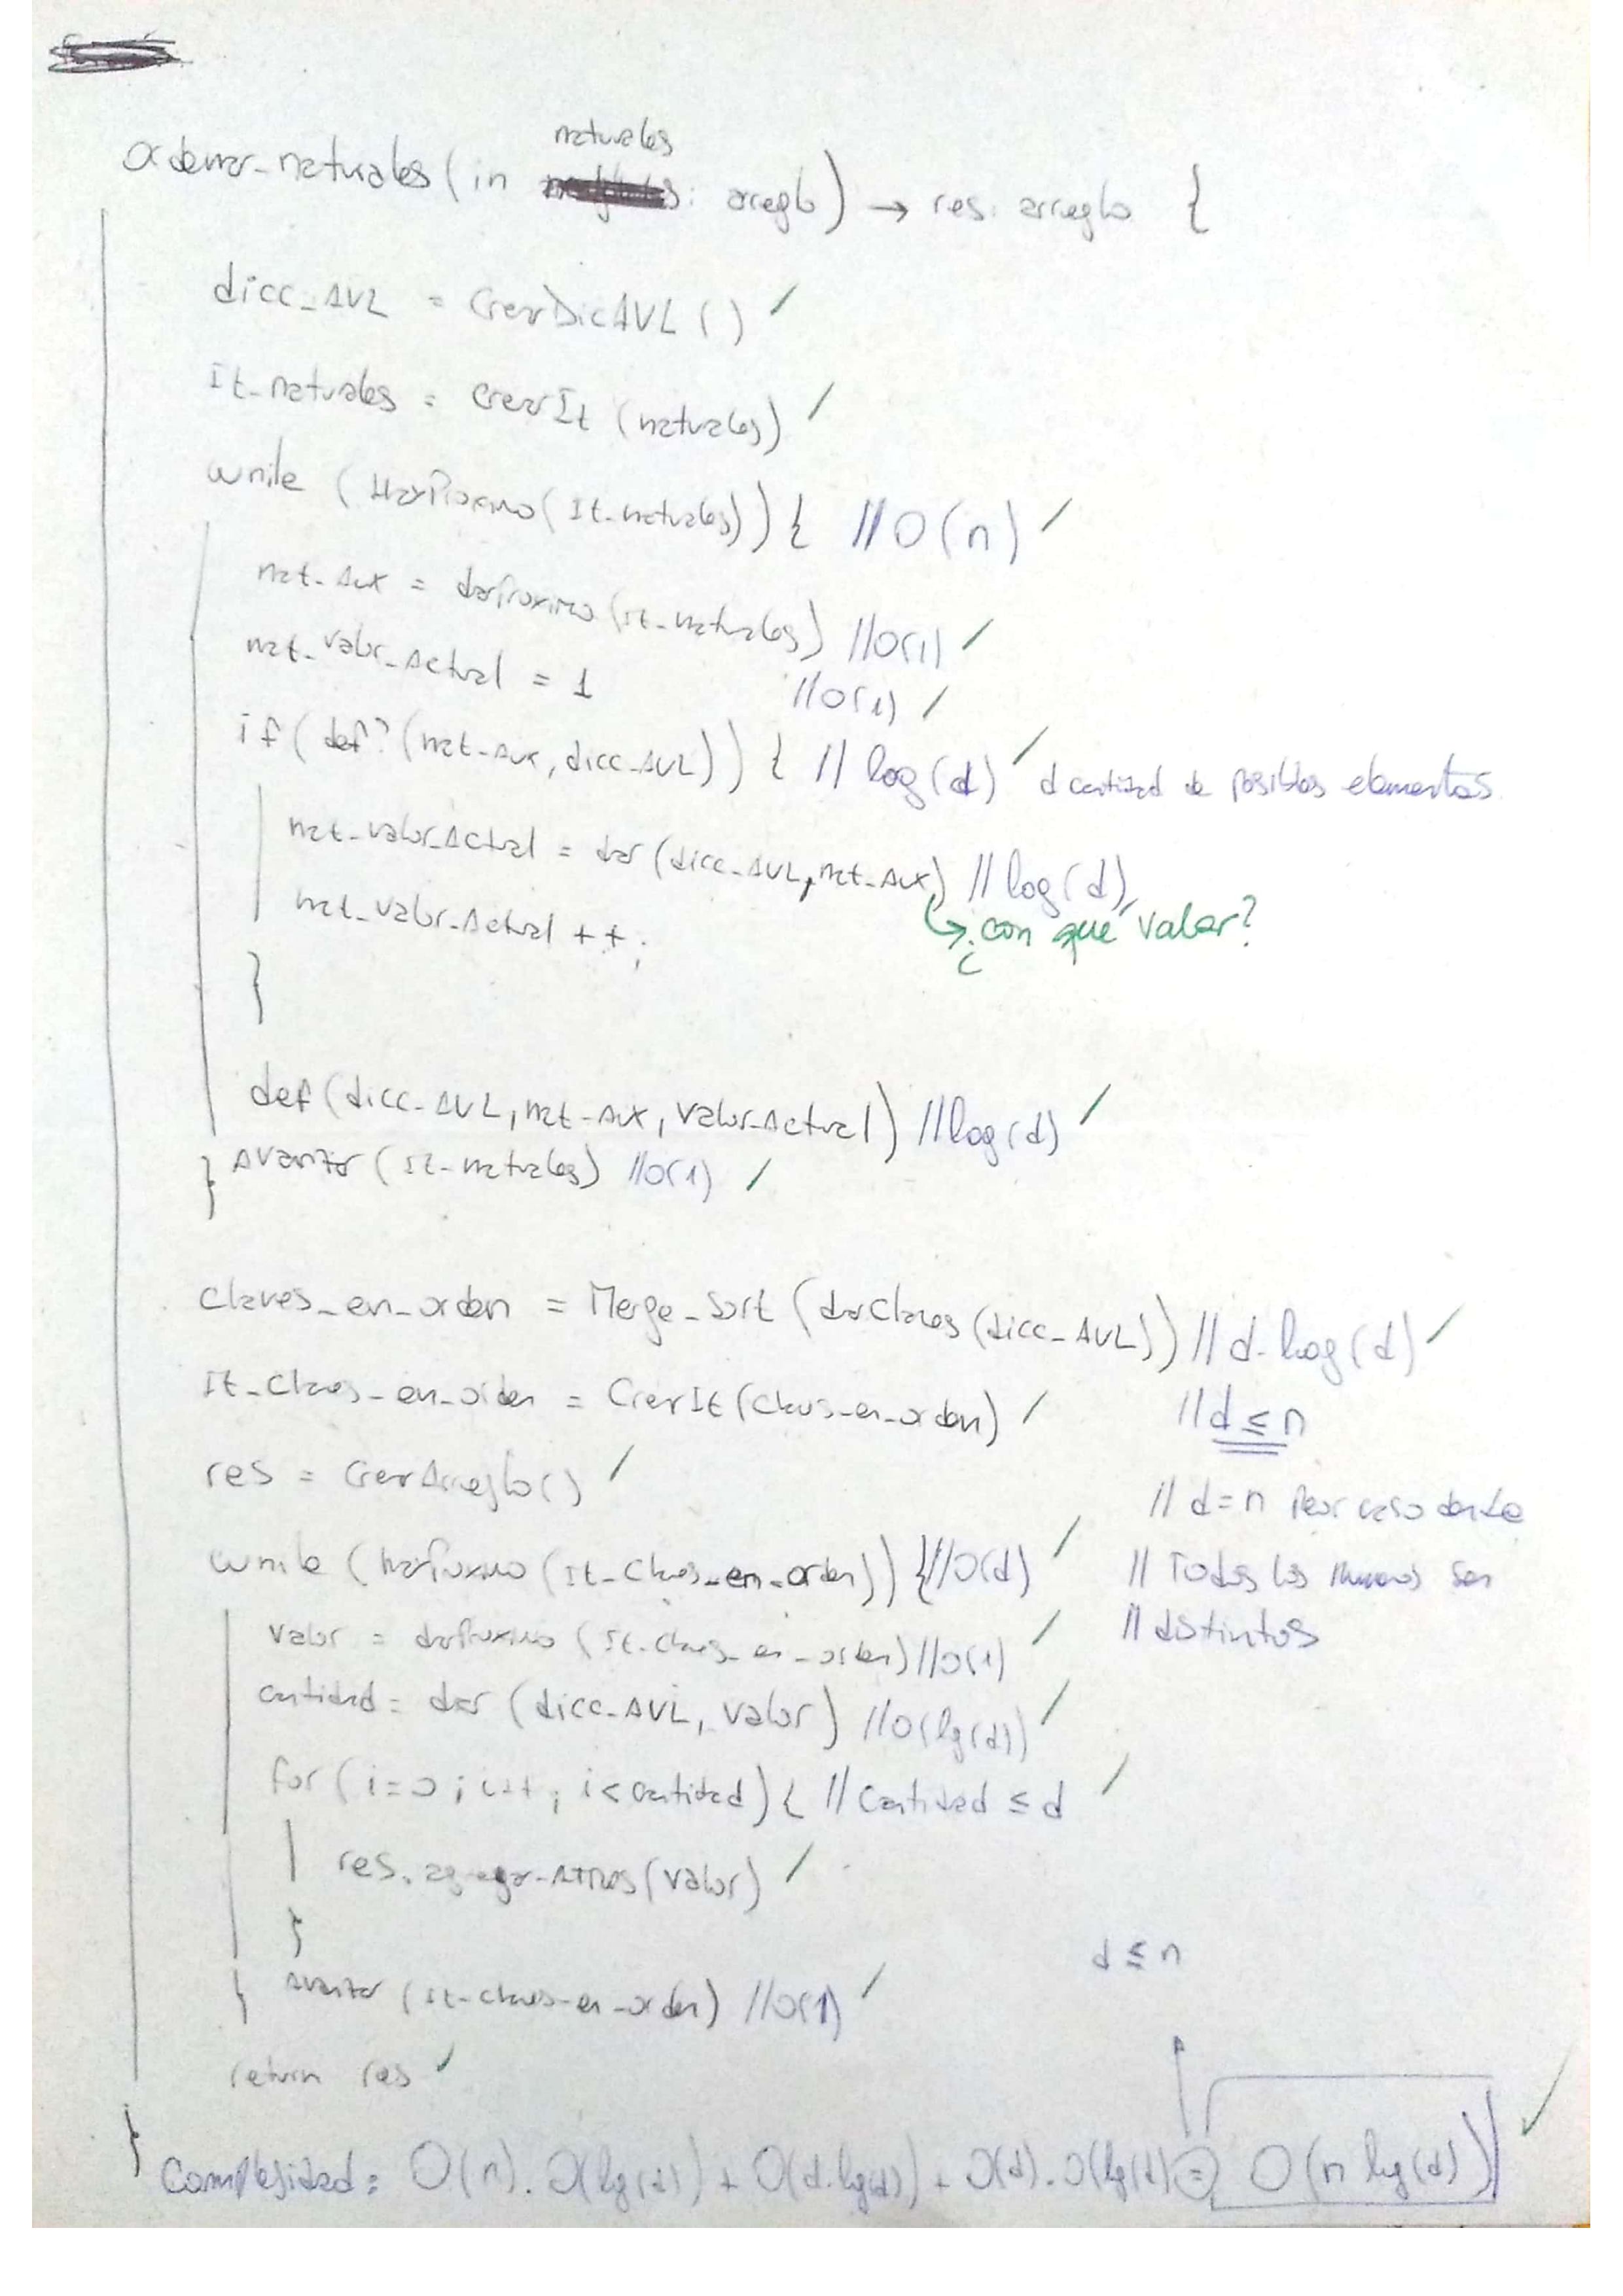 naturales
Ordenar_naturales (in : arreglo) → res: arreglo {
dicc_AVL = CrearDicAVL ( ) ✓
It_naturales = CrearIt (naturales) ✓
while ( HayProximo( It_naturales)) { //O(n) ✓
nat_Aux = darProximo (It_naturales) //O(1) ✓
nat_valor_Actual = 1 //O(1) ✓
if ( def? (nat_Aux, dicc_AVL)) { // log(d) ✓ d cantidad de posibles elementos
nat_valor_Actual = dar (dicc_AVL, nat_Aux) // log(d)
↳ ¿con qué valor?
nat_valor_Actual ++;
}
def (dicc_AVL, nat_Aux, valor_Actual) //log(d) ✓
} Avanzar (It_naturales) //O(1) ✓
Claves_en_orden = Merge_Sort (darClaves (dicc_AVL)) // d.log(d) ✓
It_Claves_en_orden = CrearIt (Claves_en_orden) ✓ // d ≤ n
res = CrearArreglo() ✓
// d=n Peor caso donde
while (hayProximo (It_Claves_en_orden)) { //O(d) ✓ // Todos los numeros son
valor = darProximo (It_Claves_en_orden) //O(1) ✓ // distintos
cantidad = dar (dicc_AVL, valor) //O(lg(d)) ✓
for ( i=0 ; i++ ; i< cantidad) { // Cantidad ≤ d ✓
res. agregar_Atras (valor) ✓
}
d ≤ n
} Avanzar (It_claves_en_orden) //O(1) ✓
return res ✓
} Complejidad: O(n). O(lg(d)) + O(d.lg(d)) + O(d). O(lg(d)) = O(n lg(d)) ✓